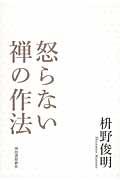 怒らない
禅の作法
枡野俊明
河出書房新社